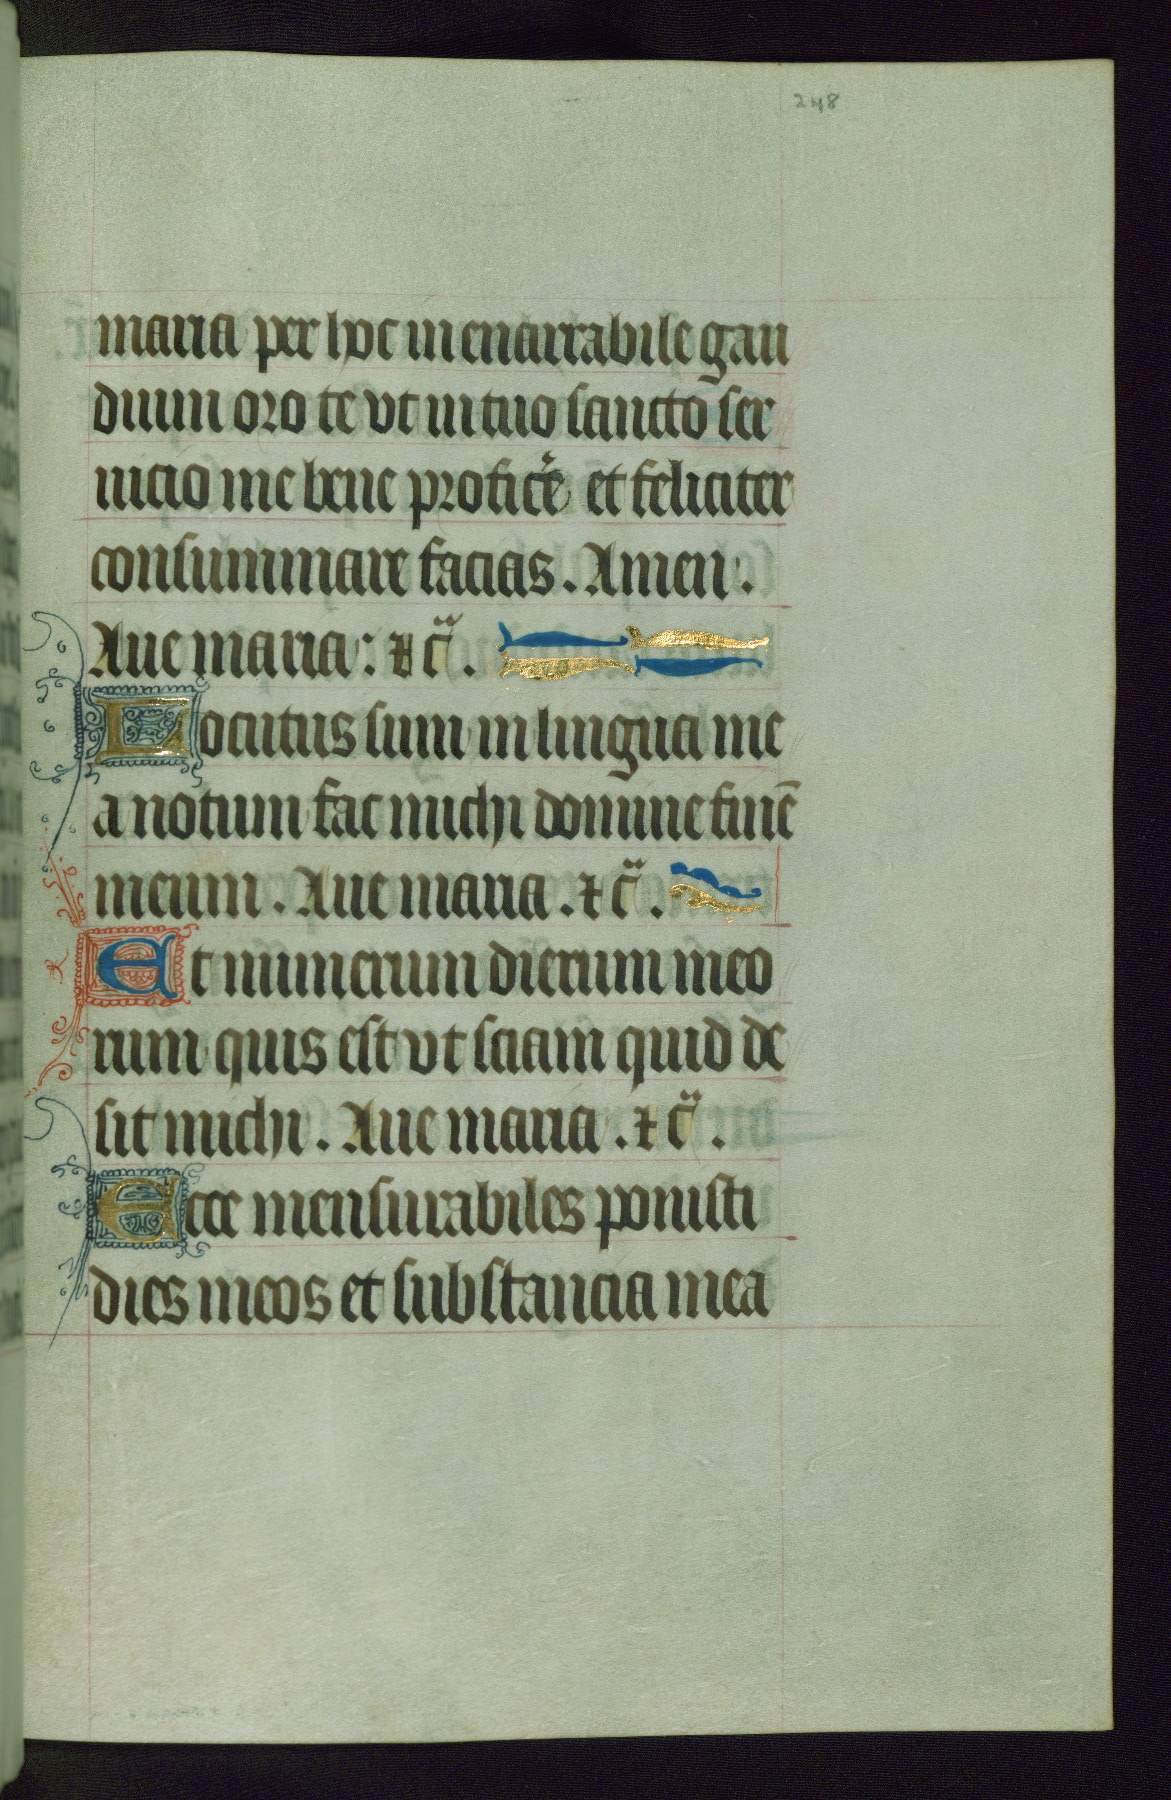 248
maria per hoc inenarrabile gau
dium oro te ut in tuo sancto ser
uicio me bene proficẽ et feliciter
consummare facias. Amen.
Aue maria: ⁊ cͣ.
Locutus sum in lingua me
a notum fac michi domine finẽ
meum. Aue maria. ⁊ cͣ.
Et numerum dierum meo
rum quis est ut sciam quid de
sit michi. Aue maria. ⁊ cͣ.
Ecce mensurabiles ponisti
dies meos et substancia mea